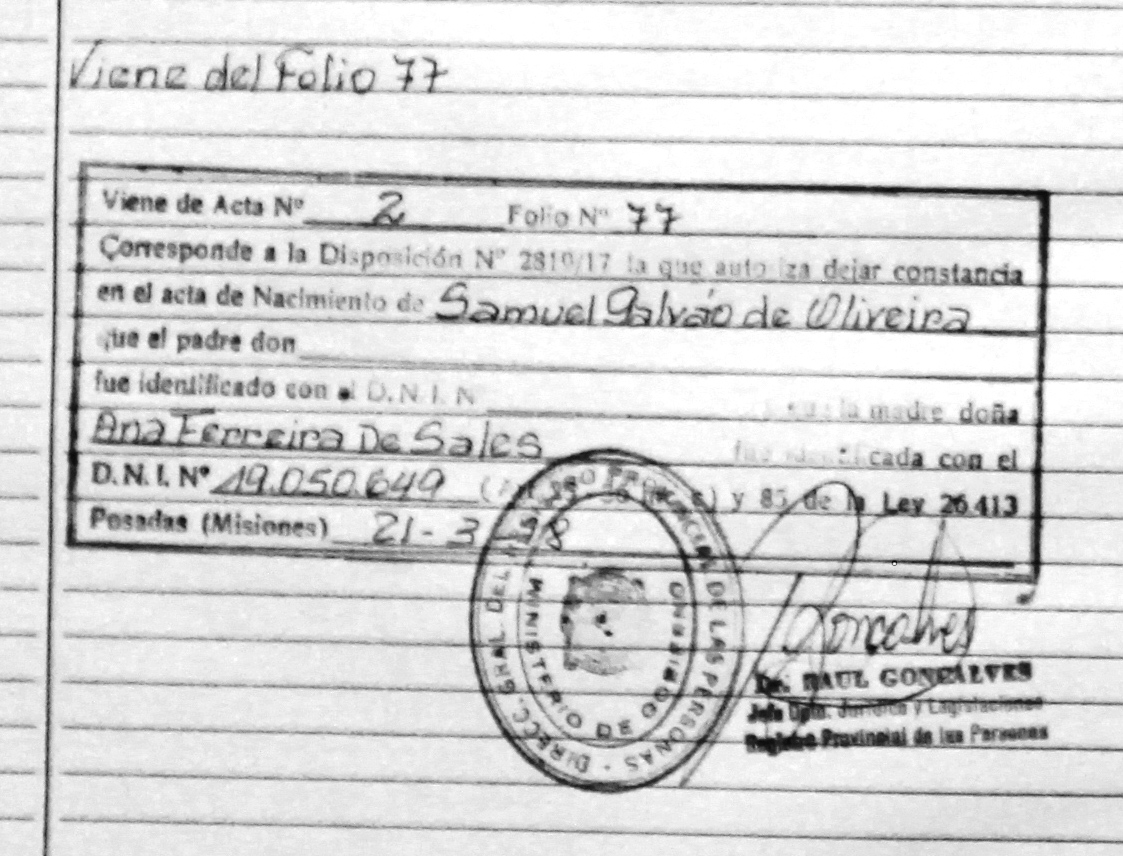 Viene del Folio 77
Viene de Acta Nº 2 Folio Nº 77
Corresponde a la Disposición Nº 2810/17 la que auto iza dejar constancia
en el acta de Nacimiento de Samuel Galváo de Oliveira
que el padre don
fue identificado con el D.N.I. N
la madre doña
Ana Ferreira De Sales
fue identificada con el
D.N.I. Nº 19.050.649 y 85 de la Ley 26.413
Posadas (Misiones) 21-3
DIRECC. GRAL. DEL REGISTRO PROVINCIAL DE LAS PERSONAS
MINISTERIO DE GOBIERNO
Goncalves
Dr. RAUL GONCALVES
Jefe Dpto. Jurídico y Legislaciones
Registro Provincial de las Personas